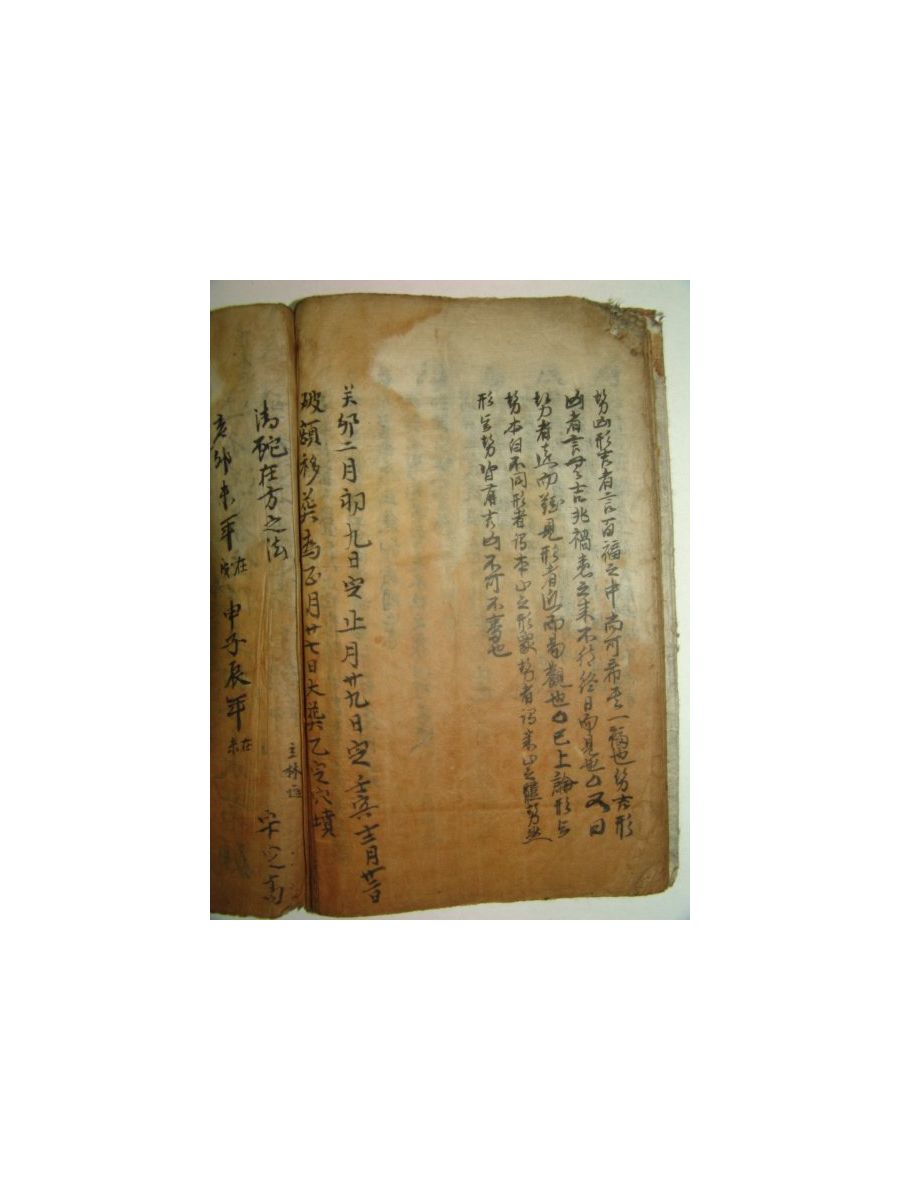 勢凶形吉者言百福之中尚可希其一福也勢吉形
凶者言無吉兆禍患之来不待終日而見也○又曰
勢者遠而難見形者近而易觀也○已上論形与
勢本自不同形者謂本山之形象勢者謂来山之勢然
形与勢皆有吉凶不可不審也
癸卯二月初九日定正月廿九日定壬寅十二月廿二日
破額移葬為正月廿七日大葬乙定穴墳
在方之法
亥卯未年在
申子辰年在未